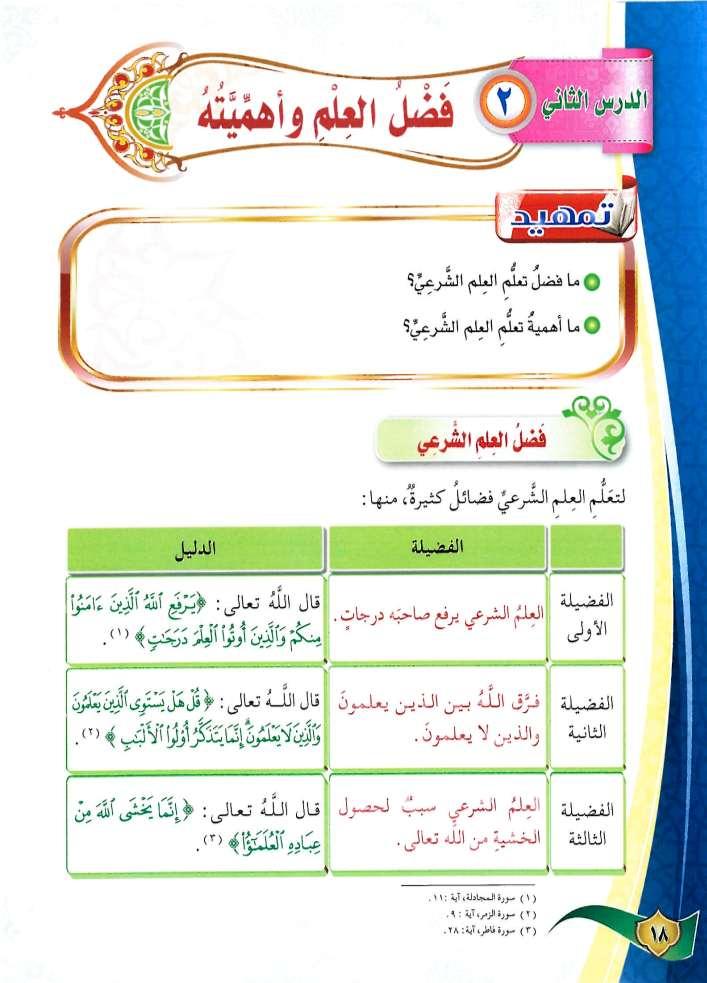 الدرس الثاني
٢
فَضْلُ العِلْمِ وأهمِّيَّتُهُ
تمهيد
ما فضلُ تعلُّمِ العِلم الشَّرعِيِّ؟
ما أهميةُ تعلُّمِ العِلم الشَّرعِيِّ؟
فَضلُ العِلمِ الشَّرعِي
لتعَلُّمِ العِلمِ الشَّرعيِّ فضائلُ كثيرةٌ، منها:
الفضيلة
الدليل
الفضيلة
الأولى
العِلمُ الشرعي يرفع صاحبَه درجاتٍ.
قال اللَّهُ تعالى: ﴿يَرْفَعِ ٱللَّهُ ٱلَّذِينَ ءَامَنُوا۟
مِنكُمْ وَٱلَّذِينَ أُوتُوا۟ ٱلْعِلْمَ دَرَجَـٰتٍ﴾ (١).
الفضيلة
الثانية
فرَّق اللَّهُ بين الذين يعلمونَ
والذين لا يعلمونَ.
قال اللَّهُ تعالى: ﴿قُلْ هَلْ يَسْتَوِى ٱلَّذِينَ يَعْلَمُونَ
وَٱلَّذِينَ لَا يَعْلَمُونَ ۗ إِنَّمَا يَتَذَكَّرُ أُو۟لُوا۟ ٱلْأَلْبَـٰبِ﴾ (٢).
الفضيلة
الثالثة
العِلمُ الشرعي سببٌ لحصول
الخشيةِ من الله تعالى.
قال اللَّهُ تعالى: ﴿إِنَّمَا يَخْشَى ٱللَّهَ مِنْ
عِبَادِهِ ٱلْعُلَمَـٰٓؤُا۟﴾ (٣).
(١) سورة المجادلة، آية :١١.
(٢) سورة الزمر، آية : ٩.
(٣) سورة فاطر، آية: ٢٨.
١٨